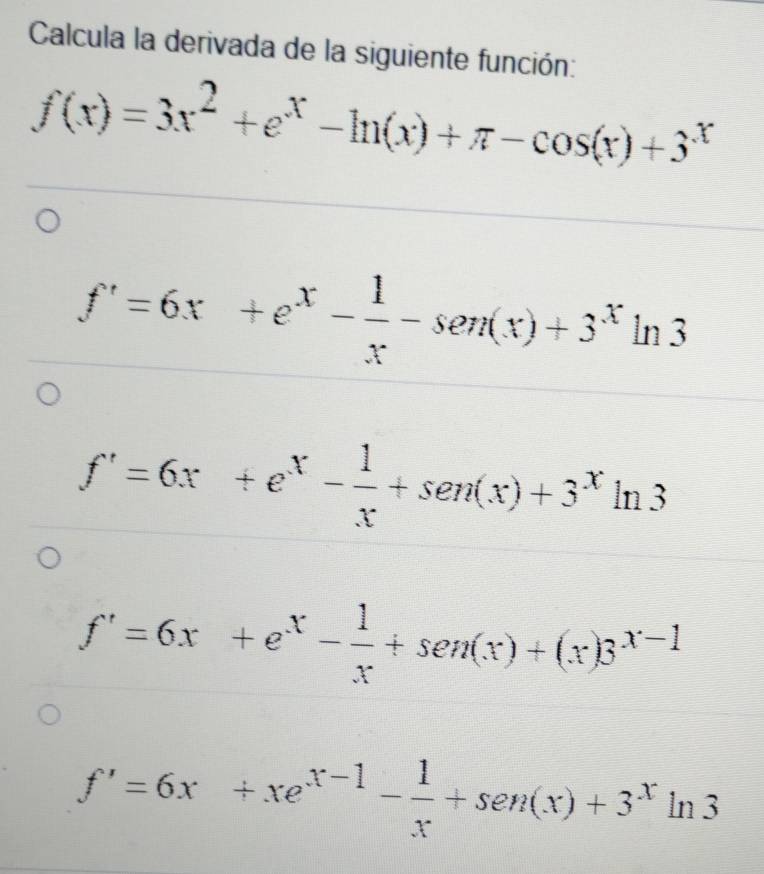 Calcula la derivada de la siguiente función:
f(x) = 3x² + eˣ − ln(x) + π − cos(x) + 3ˣ
f' = 6x + eˣ − 1/x − sen(x) + 3ˣ ln 3
f' = 6x + eˣ − 1/x + sen(x) + 3ˣ ln 3
f' = 6x + eˣ − 1/x + sen(x) + (x)3ˣ⁻¹
f' = 6x + xeˣ⁻¹ − 1/x + sen(x) + 3ˣ ln 3